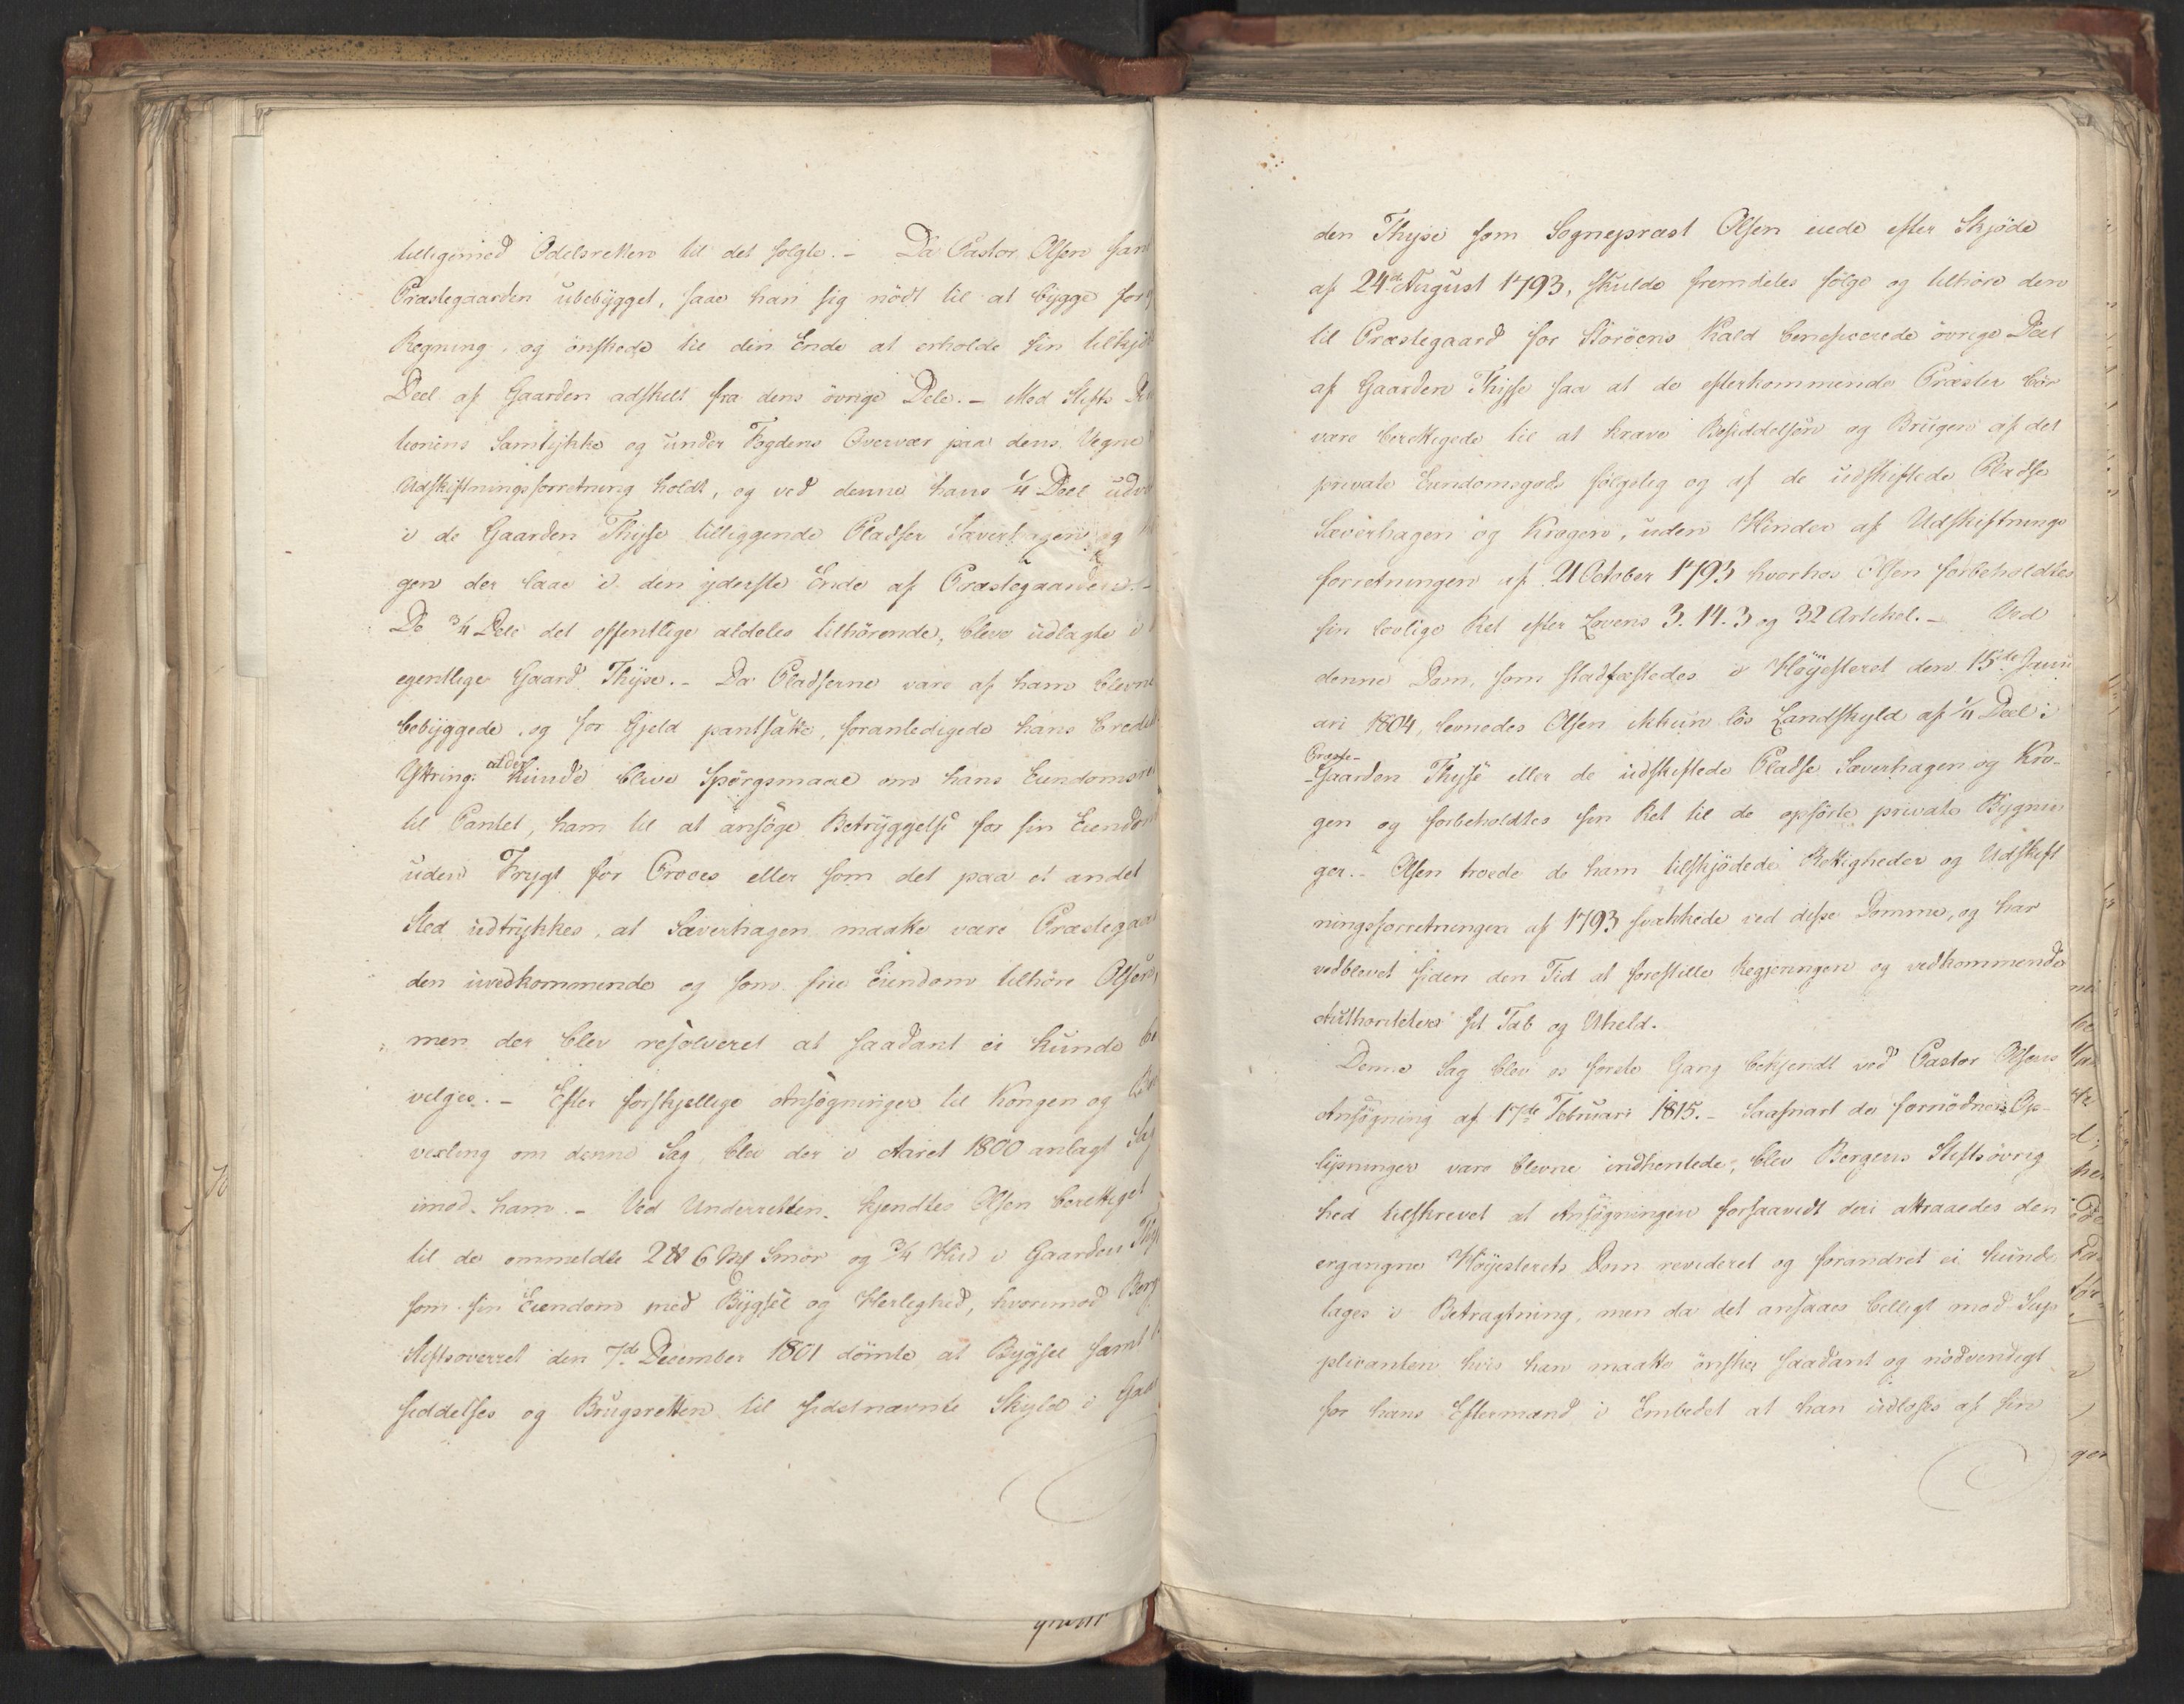 tilligemed Odelsretten til det solgte. - Da Pastor Olsen fant
Præstegaarden ubebygget, saae han sig nödt til at bygge for
Regning, og önskede til den Ende at erholde sin tilskjö
Deel af Gaarden adskilt fra dens övrige Dele. - Med Stifts Di
tionens Samtykke og under Fogdens Overvær paa dens Vegne
Udskiftningsforretning holdt, og ved denne hans 1/4 Deel udvi
i de Gaarden Thyse tilliggende Pladser Sæverhagen og
gen der laae i den yderste Ende af Præstegaarden. -
De 3/4 Dele det offentlige aldeles tilhörende, bleve udlagte i
egentlige Gaard Thyse. - Da Pladserne vare af ham blevne
bebyggede, og for Gjeld pantsatte, foranledigede hans Credit
Yttring: at der kunde blive Spörgsmaal om hans Eiendomsre
til Pantet, ham til at ansöge Betryggelse for sin Eiendom
uden Frygt for Proces eller som det paa et andet
Sted udtrykkes, at Sæverhagen maatte være Præstegaa
den uvedkommende og som frie Eiendom tilhöre Olsen,
men der blev resolveret at saadant ei kunde be
vilges. - Efter forskjellige Ansögninger til Kongen og Bre
vexling om denne Sag, blev der i Aaret 1800 anlagt Sag
imod ham. - Ved Underretten kjendtes Olsen berettiget
til de ommeldte 2 ℔ 6 Mk Smör og 3/4 Hud i Gaarden Thys
som sin Eiendom med Bygsel og Herlighed, hvorimod Berg
Stiftsoverret den 7de December 1801 dömte at Bygsel samt
siddelses og Brugsretten til sidstnævnte Skyld i Gaar
den Thyse som Sognepræst Olsen eiede efter Skjöde
af 24de August 1793, skulde fremdeles fölge og tilhöre den
til Præstegaard for Störöens Kald beneficerede övrige Deel
af Gaarden Thyse saa at de efterkommende Præster bör
være berettigede til at kræve Besiddelsen og Brugen af det
private Eiendomsgods fölgelig og af de udskiftede Pladse
Sæverhagen og Krogen, uden Hinder af Udskiftnings
forretningen af 21 October 1793 hvorhos Olsen forbeholdtes
sin lovlige Ret efter Lovens 3. 14. 3 og 32 Artikel. - Ved
denne Dom, som stadfæstedes i Höyesteret den 15de Janu
ari 1804, levnedes Olsen ikkun lös Landskyld af 1/4 Deel i
Præste-
-Gaarden Thyse eller de udskiftede Pladse Sæverhagen og Kro-
gen og forbeholdtes sin Ret til de opförte private Bygnin
ger. - Olsen troede de ham tilskjödede Rettigheder og Udskift
ningsforretningen af 1793 svækkede ved disse Domme, og har
vedblevet siden den Tid at forestille Regjeringen og vedkommende
Authoriteter sit Tab og Uheld.
Denne Sag blev os förste Gang bekjendt ved Pastor Olsens
Ansögning af 17de Februari 1815. - Saasnart de fornödne Op-
lysninger vare blevne indhentede, blev Bergens Stiftsövrig
hed tilskrevet at Ansögningen forsaavidt deri attraaedes den
ergangne Höyesterets Dom revideret og forandret ei kunde
tages i Betragtning, men da det ansaaes billigt mod Sup
plicanten hvis han maatte önske saadant og nödvendigt
for hans Eftermand i Embedet at han udlöses af sin